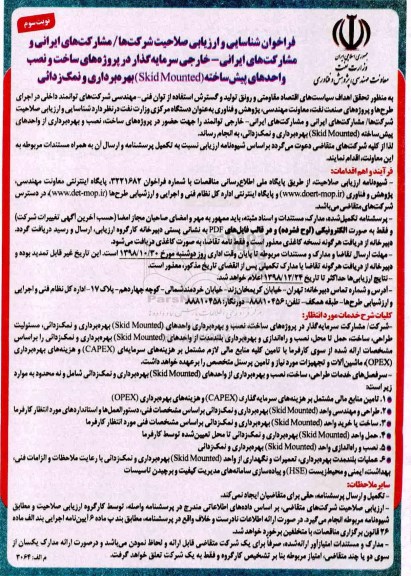 نوبت سوم
جمهوری اسلامی ایران
وزارت نفت
معاونت مهندسی، پژوهش و فناوری
فراخوان شناسایی و ارزیابی صلاحیت شرکت‌ها/ مشارکت‌های ایرانی و
مشارکت‌های ایرانی – خارجی سرمایه‌گذار در پروژه‌های ساخت و نصب
واحدهای پیش‌ساخته (Skid Mounted) بهره‌برداری و نمک‌زدائی
به منظور تحقق اهداف سیاست‌های اقتصاد مقاومتی و رونق تولید و گسترش استفاده از توان فنی- مهندسی شرکت‌های توانمند داخلی در اجرای
طرح‌ها و پروژه‌های صنعت نفت، معاونت مهندسی، پژوهش و فناوری به‌عنوان دستگاه مرکزی وزارت نفت در نظر دارد شناسایی و ارزیابی صلاحیت
شرکت‌ها/ مشارکت‌های ایرانی و مشارکت‌های ایرانی- خارجی توانمند را جهت حضور در پروژه‌های ساخت، نصب و بهره‌برداری از واحدهای
پیش‌ساخته (Skid Mounted) بهره‌برداری و نمک‌زدائی، به انجام رساند.
لذا از کلیه شرکت‌های متقاضی دعوت می‌گردد براساس شیوه‌نامه ارزیابی نسبت به تکمیل پرسشنامه و ارسال آن به همراه مستندات مربوطه به
این معاونت، اقدام نمایند.
فرآیند و اهم اقدامات:
- شیوه‌نامه ارزیابی صلاحیت، از طریق پایگاه ملی اطلاع‌رسانی مناقصات با شماره فراخوان ۳٬۳۲۱٬۶۸۲، پایگاه اینترنتی معاونت مهندسی،
پژوهش و فناوری (www.doert-mop.ir) و پایگاه اینترنتی اداره کل نظام فنی و اجرایی و ارزشیابی طرح‌ها (www.det-mop.ir)، در دسترس
شرکت‌های متقاضی می‌باشد.
- پرسشنامه تکمیل‌شده، مدارک، مستندات و اسناد مثبته، باید ممهور به مهر و امضای صاحبان مجاز امضا (حسب آخرین آگهی تغییرات شرکت)
و فقط به صورت الکترونیکی (لوح فشرده) و در قالب فایل‌های PDF به نشانی پستی دبیرخانه کارگروه ارزیابی، ارسال و رسید دریافت گردد.
دبیرخانه از دریافت هرگونه نسخه کاغذی معذور است و فقط نامه تقاضا، به صورت کاغذی دریافت می‌شود.
- مهلت ارسال تقاضا و مدارک و مستندات مربوطه تا پایان وقت اداری روز دوشنبه مورخ ۱۳۹۸/۱۰/۳۰ است. این تاریخ غیر قابل تمدید بوده و
دبیرخانه از دریافت هرگونه تقاضا یا مدارک تکمیلی پس از انقضای تاریخ مذکور، معذور است.
- نتایج ارزیابی‌ها حداکثر تا تاریخ ۱۳۹۸/۱۲/۲۴ اعلام خواهد شد.
- آدرس و شماره تماس دبیرخانه: تهران- خیابان کریمخان‌زند- خیابان خردمند‌شمالی- کوچه چهاردهم- پلاک ۱۷- اداره کل نظام فنی و اجرایی
و ارزشیابی طرح‌ها- طبقه همکف- تلفن: ۸۸۸۱۰۴۵۶- دورنگار: ۸۸۸۱۰۴۵۸
کلیات شرح خدمات مورد انتظار:
-شرکت/ مشارکت سرمایه‌گذار در پروژه‌های ساخت، نصب و بهره‌برداری واحدهای (Skid Mounted) بهره‌برداری و نمک‌زدائی، مسئولیت
طراحی، ساخت، حمل تا محل، نصب و راه‌اندازی و بهره‌برداری بلندمدت از واحدهای (Skid Mounted) بهره‌برداری و نمک‌زدائی را براساس
مشخصات ارائه شده از سوی کارفرما با تامین کلیه منابع مالی لازم مشتمل بر هزینه‌های سرمایه‌ای (CAPEX) و هزینه‌های بهره‌برداری
(OPEX)، ماشین‌آلات و تجهیزات مورد نیاز و تامین پرسنل متخصص را برعهده خواهد داشت.
- سرفصل‌های خدمات طراحی، ساخت، نصب و بهره‌برداری از واحدهای (Skid Mounted) بهره‌برداری و نمک‌زدائی شامل و نه محدود به موارد
زیر است:
۱. تامین منابع مالی مشتمل بر هزینه‌های سرمایه‌گذاری (CAPEX) و هزینه‌های بهره‌برداری (OPEX)
۲. طراحی و مهندسی واحد (Skid Mounted) بهره‌برداری و نمک‌زدائی براساس مشخصات فنی، دستورالعمل‌ها و استانداردهای مورد انتظار کارفرما
۳. ساخت یا خرید واحد (Skid Mounted) بهره‌برداری و نمک‌زدائی براساس مشخصات فنی مورد انتظار کارفرما
۴. حمل واحد (Skid Mounted) بهره‌برداری و نمک‌زدائی تا محل تعیین‌شده توسط کارفرما
۵. نصب و راه‌اندازی واحد (Skid Mounted) بهره‌برداری و نمک‌زدائی
۶. عملیات بلندمدت بهره‌برداری، تعمیرات و نگهداری از واحد (Skid Mounted) بهره‌برداری و نمک‌زدائی با رعایت ملاحظات و الزامات فنی،
بهداشت، ایمنی و محیط‌زیست (HSE) و پیاده‌سازی سامانه‌های مدیریت کیفیت و برچیدن تاسیسات
سایر ملاحظات:
- تکمیل و ارسال پرسشنامه، حقی برای متقاضیان ایجاد نمی‌کند.
- ارزیابی صلاحیت شرکت‌های متقاضی، بر اساس داده‌های اطلاعاتی مندرج در پرسشنامه واصله، توسط کارگروه ارزیابی صلاحیت و مطابق
شیوه‌نامه مربوطه انجام می‌گیرد. در صورت ارائه اطلاعات نادرست و خلاف واقع در پرسشنامه، مطابق بند ب ماده ۶ آیین‌نامه اجرایی بند الف ماده
۲۶ قانون برگزاری مناقصات، با متخلفین برخورد خواهد شد.
- مدارک و مستندات امتیازآور ارائه‌شده، صرفاً برای یک شرکت متقاضی قابل ارائه و لحاظ نمودن می‌باشد و درصورت ارائه مدارک یکسان از
سوی دو یا چند متقاضی، امتیاز مربوطه بنا بر تشخیص کارگروه و فقط به یک شرکت تعلق خواهد گرفت.
م الف: ۳۰۶۴